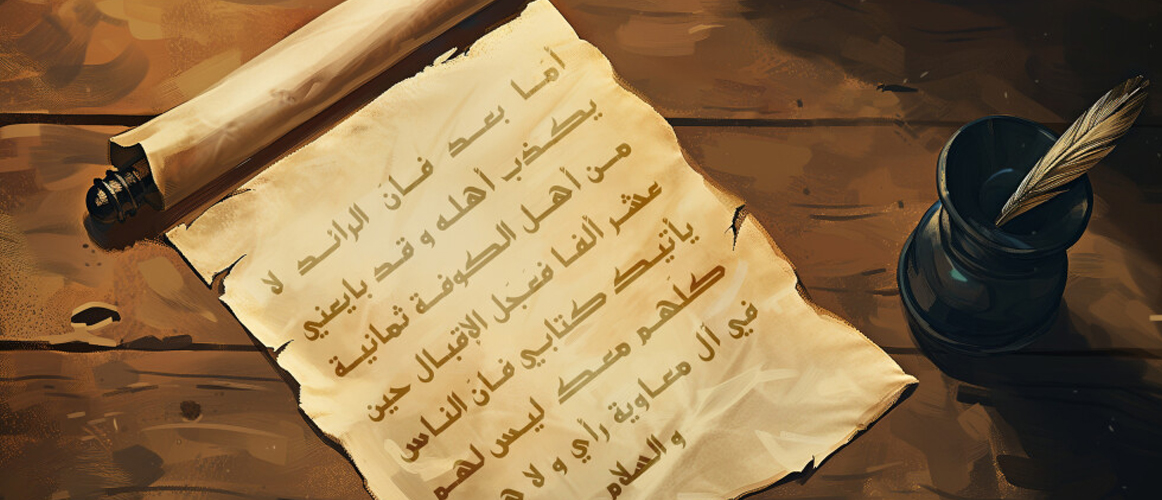 أما بعد فأن الرائد لا
يكذب أهله و قد بايعني
من أهل الكوفة ثمانية
عشر ألفا فعجل الإقبال حين
يأتيك كتابي فأن الناس
كلهم معك ليس لهم
في آل معاوية رأي و لا
و السلام